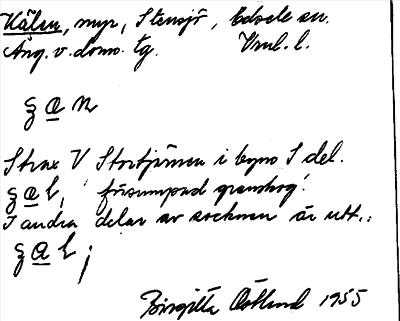 Kälen, myr, Stensjö, Edsele sn.
Ång. v. domo. tg. Vml. l.
ʒ a n
Strax V Stortjärnen i byns S del.
ʒ a l, 'försumpad granskog'.
I andra delar av socknen är utt.:
ʒ a l;
Birgitta Östlund 1955